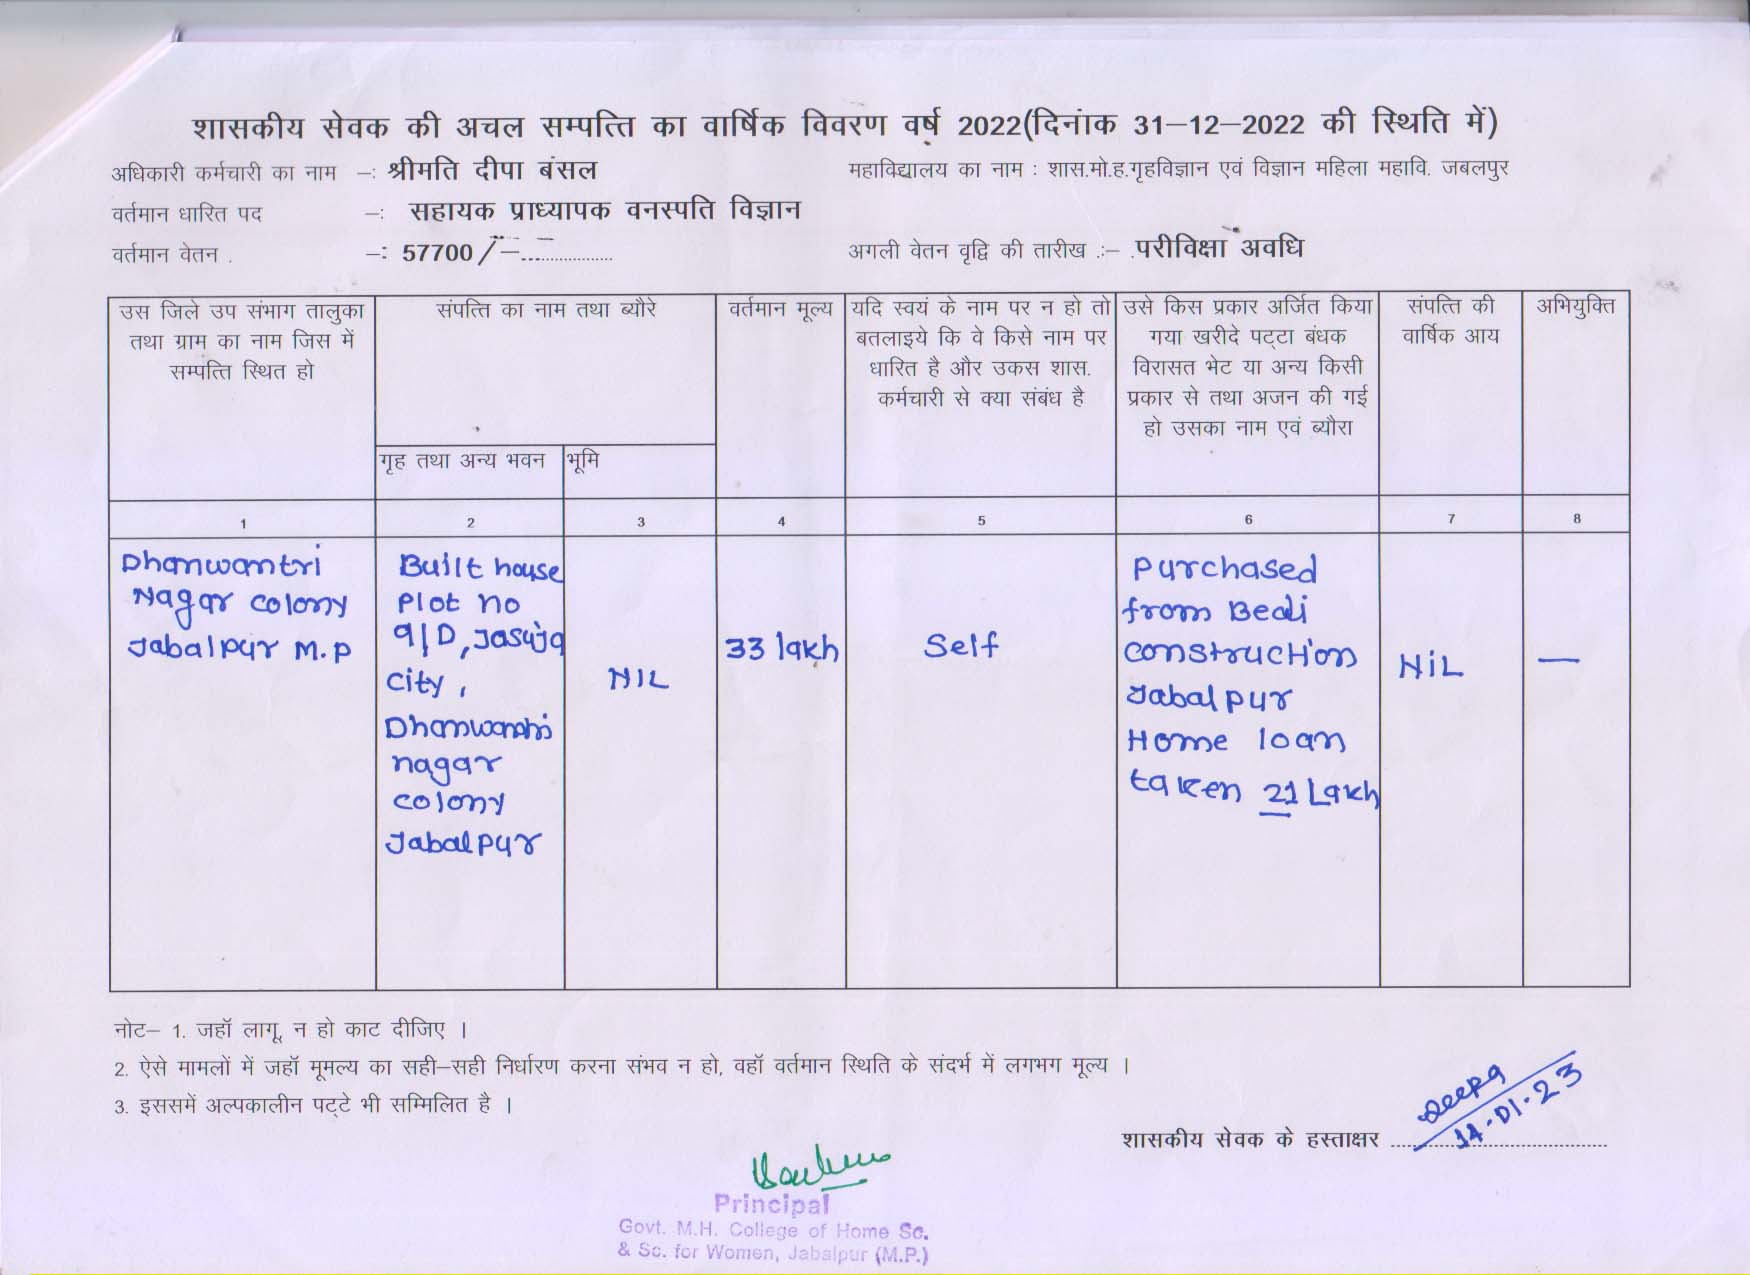 शासकीय सेवक की अचल सम्पत्ति का वार्षिक विवरण वर्ष 2022(दिनांक 31–12–2022 की स्थिति में)
अधिकारी कर्मचारी का नाम –: श्रीमति दीपा बंसल
महाविद्यालय का नाम : शास.मो.ह.गृहविज्ञान एवं विज्ञान महिला महावि. जबलपुर
वर्तमान धारित पद –: सहायक प्राध्यापक वनस्पति विज्ञान
वर्तमान वेतन . –: 57700/–...................
अगली वेतन वृद्वि की तारीख :– .परीविक्षा अवधि
उस जिले उप संभाग तालुका
तथा ग्राम का नाम जिस में
सम्पत्ति स्थित हो
संपत्ति का नाम तथा ब्यौरे
गृह तथा अन्य भवन
भूमि
वर्तमान मूल्य
यदि स्वयं के नाम पर न हो तो
बतलाइये कि वे किसे नाम पर
धारित है और उकस शास.
कर्मचारी से क्या संबंध है
उसे किस प्रकार अर्जित किया
गया खरीदे पट्टा बंधक
विरासत भेट या अन्य किसी
प्रकार से तथा अजन की गई
हो उसका नाम एवं ब्यौरा
संपत्ति की
वार्षिक आय
अभियुक्ति
1 2 3 4 5 6 7 8
Dhanwantri
Nagar colony
Jabalpur M.P
Built house
Plot no
9/D, Jasuja
city,
Dhanwantri
nagar
colony
Jabalpur
NIL
33 lakh
Self
Purchased
from Bedi
construction
Jabalpur
Home loan
taken 21 Lakh
NiL
—
नोट– 1. जहॉ लागू, न हो काट दीजिए ।
2. ऐसे मामलों में जहॉ मूमल्य का सही–सही निर्धारण करना संभव न हो, वहॉ वर्तमान स्थिति के संदर्भ में लगभग मूल्य ।
3. इससमें अल्पकालीन पट्टे भी सम्मिलित है ।
शासकीय सेवक के हस्ताक्षर ....................
Deepa
14-01-23
Principal
Govt. M.H. College of Home Sc.
& Sc. for Women, Jabalpur (M.P.)